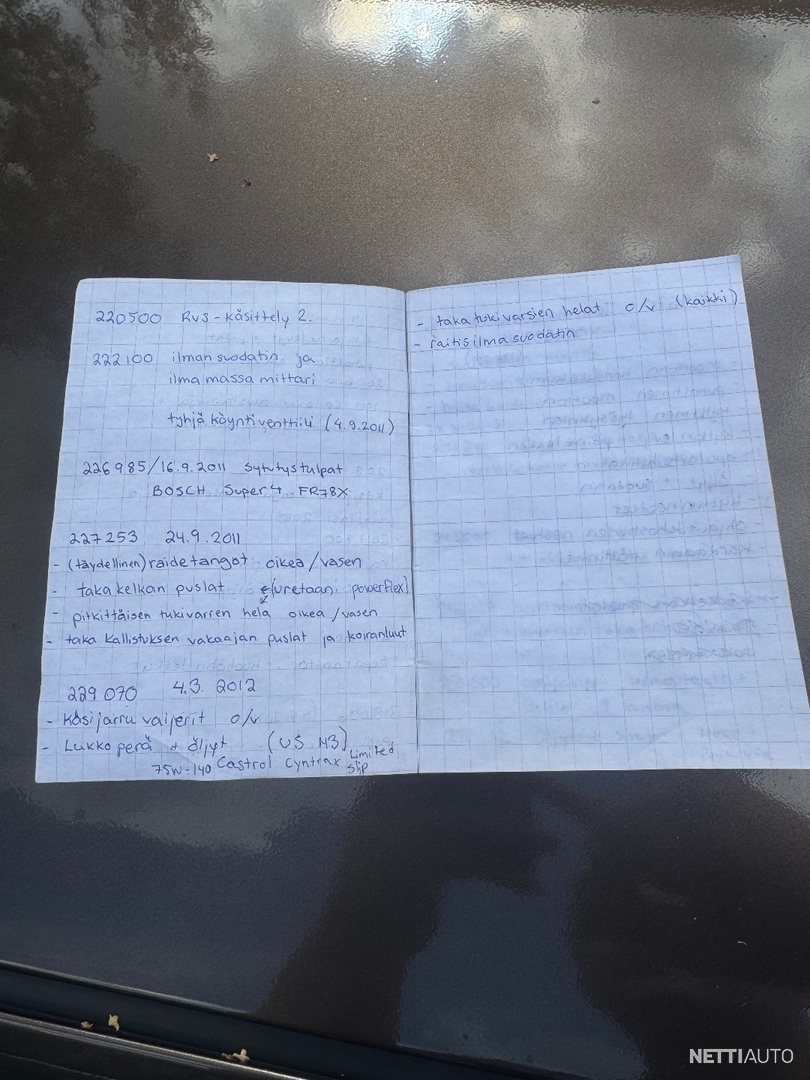 220500 RVS-käsittely 2.
222100 ilman suodatin ja
ilma massa mittari
tyhjä käyntiventtiili (4.9.2011)
226985/16.9.2011 Sytytystulpat
BOSCH Super 4 FR78X
227253 24.9.2011
- (täydellinen) raidetangot oikea/vasen
- taka kelkan puslat (uretaan powerflex)
- pitkittäisen tukivarren hela oikea/vasen
- taka kallistuksen vakaajan puslat ja koiranluut
229070 4.3.2012
- käsijarru vaijerit o/v
- Lukko perä + öljyt (US M3)
75W-140 Castrol Cyntrax Limited
Slip
- taka tukivarsien helat o/v (kaikki)
- raitisilmasuodatin
NETTIAUTO